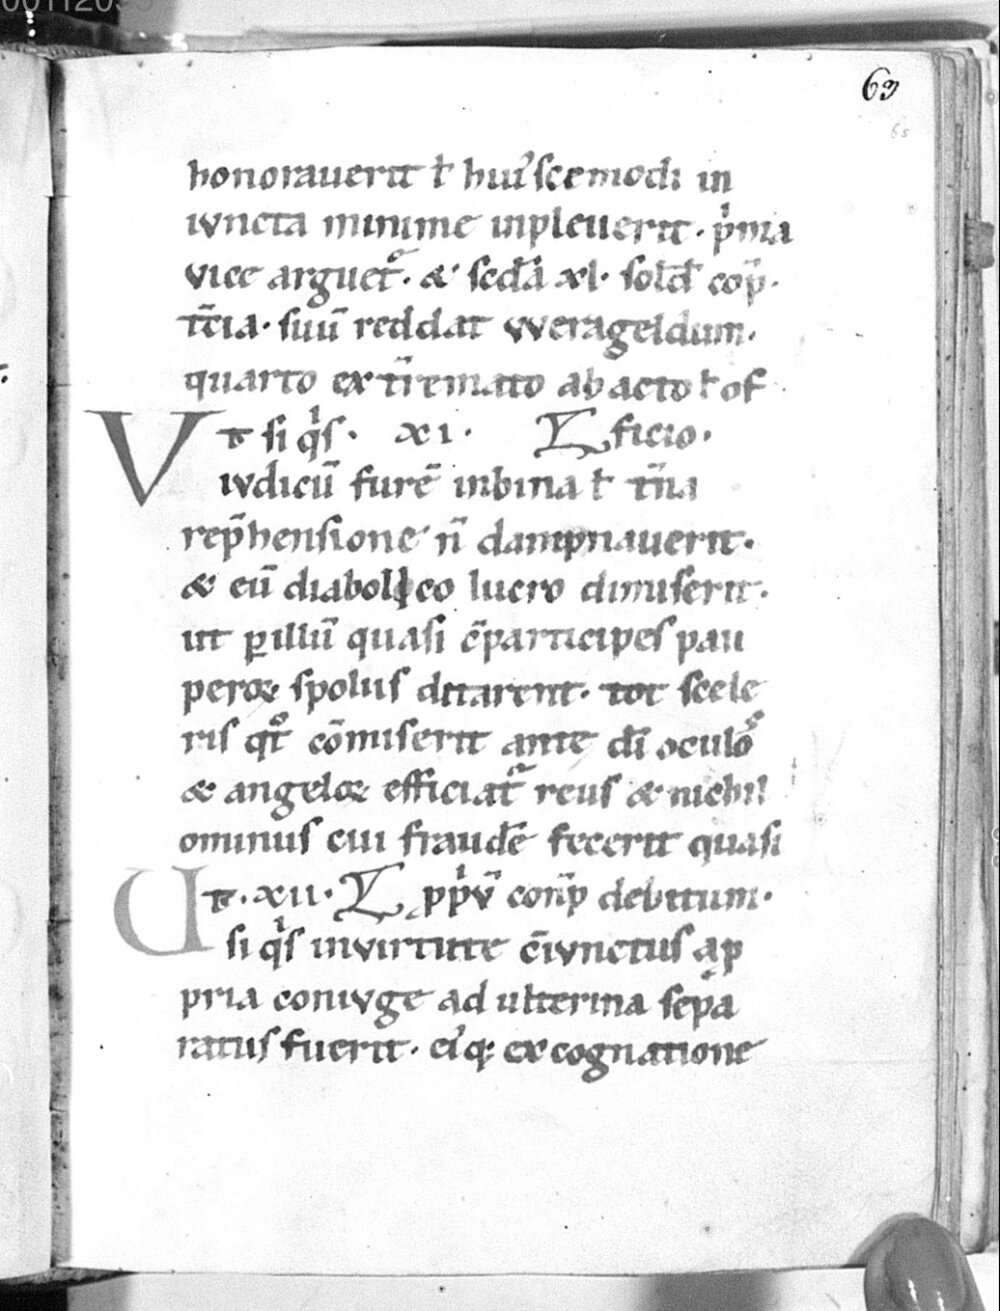 63
65
honorauerit ł huiꝰscemodi in
iuncta minime inpleuerit · p̍ma
vice arguet᷑ · & sc̄da xl · solđ cōp ·
t̄cia · suū reddat vverageldum ·
quarto ext̄remato ab acto ł of
Vt si q̍s · XI · ficio ·
iudicū furē in bina ł t̄na
rep̄hensione n̄ dampnauerit ·
& eū diabolico lucro dimiserit ·
ut ꝑ illū quasi c̄participes pau
peroꝝ spoliis ditarent · tot scele
ris qͦt cōmiserit ante dī oculoˢ
& angeloꝝ efficiat᷑ reus & nichil
ominus cui fraudē fecerit quasi
Ut · XII · pp̍ū con̄p debitum ·
si q̍s in virtute c̄iunctus a p
pria coniuge ad ulterina sepa
ratus fuerit · eiꝰq; ex cognatione